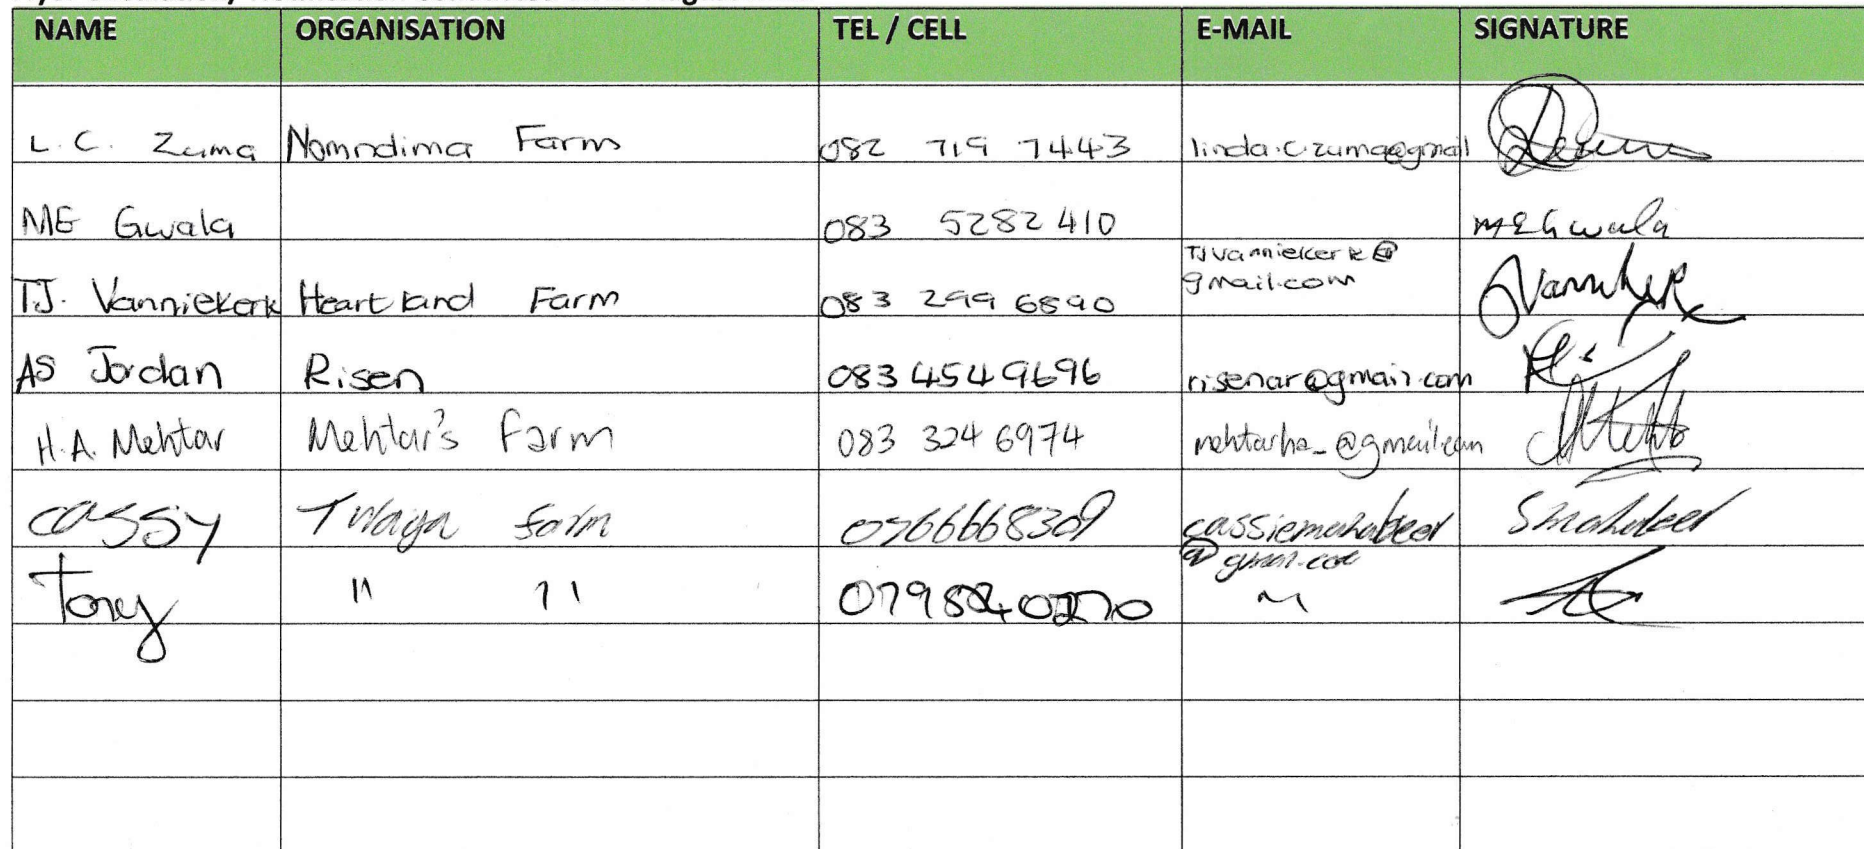 NAME ORGANISATION TEL / CELL E-MAIL SIGNATURE
L. C. Zuma Nomndima Farm 082 719 7443 linda.c.zuma@gmail
ME Gwala 083 5282 410 MEGwala
TJ. Vanniekerk Heartland Farm 083 299 6890 TJVanniekerk@
gmail.com
AS Jordan Risen 083 454 9696 risenar@gmail.com
H.A. Mehtar Mehtar's Farm 083 324 6974 mehtarha_@gmail.com
Cassy farm 0766668309 cassiemahabeer Smahabeer
@gmail.com
Tony " "